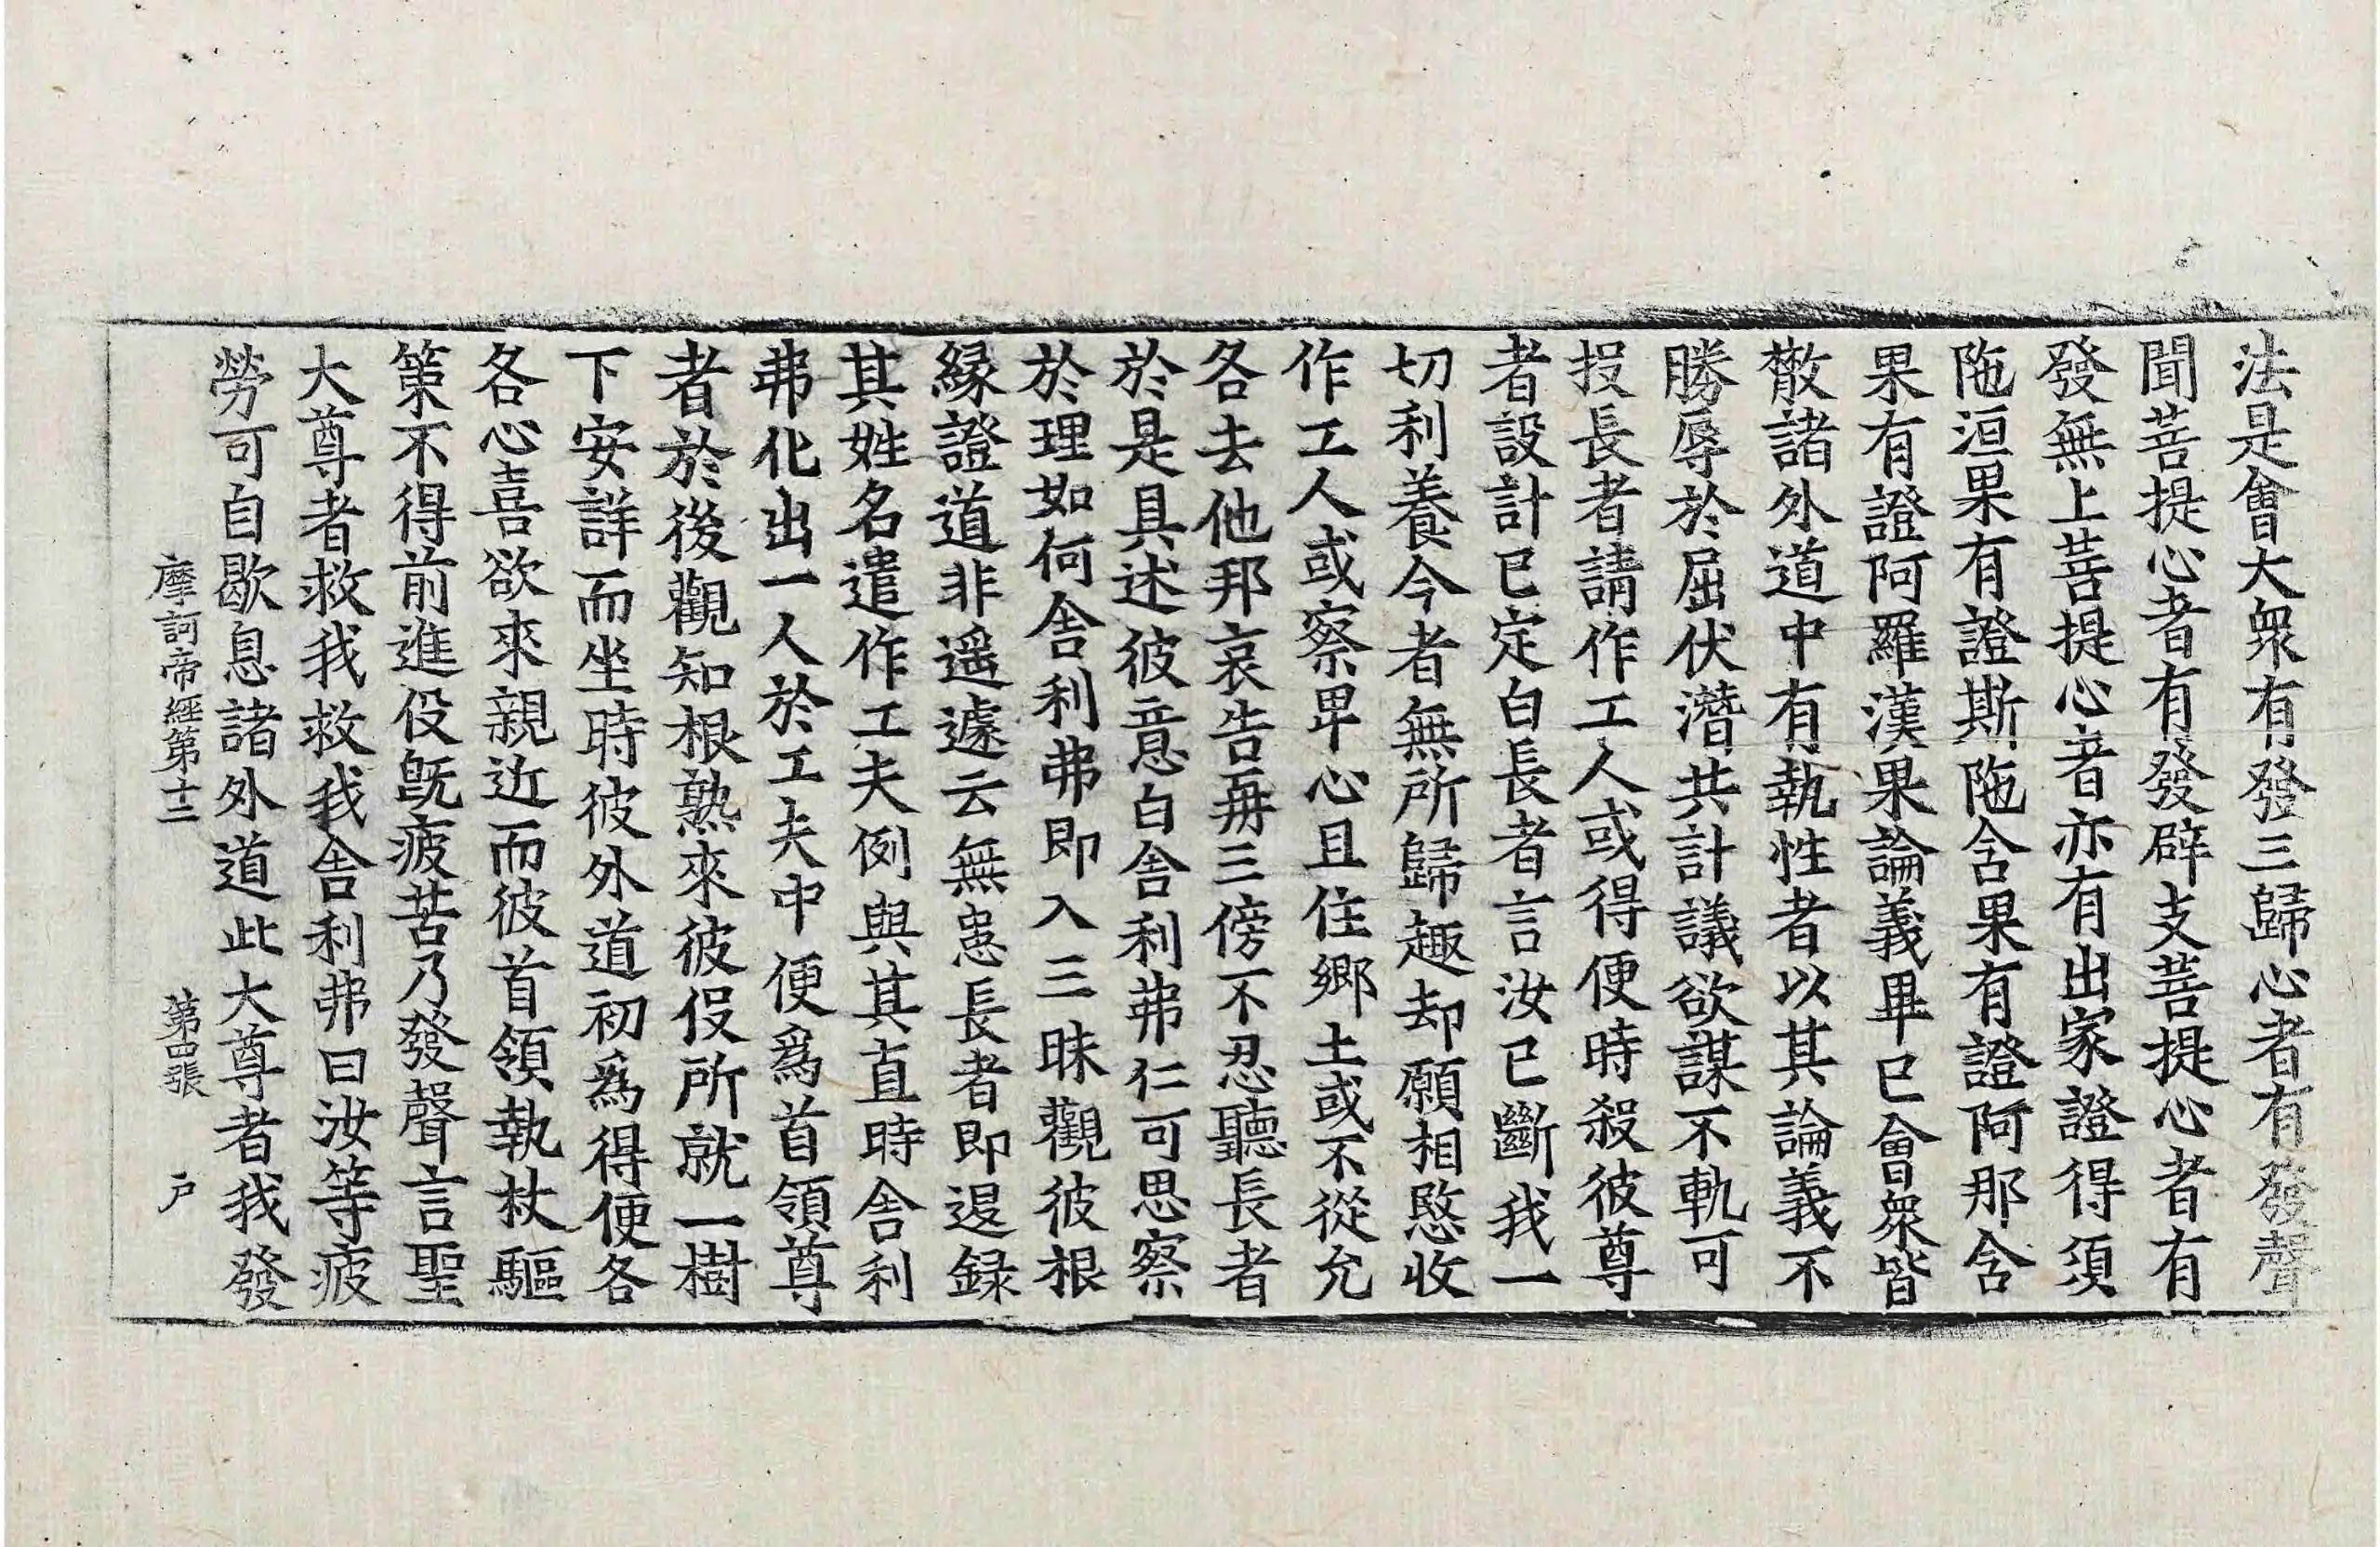 法是會大衆有發三歸心者有發聲
聞菩提心者有發辟支菩提心者有
發無上菩提心者亦有出家證得須
陁洹果有證斯陁含果有證阿那含
果有證阿羅漢果論義畢已會衆皆
散諸外道中有執性者以其論義不
勝辱於屈伏潛共計議欲謀不軌可
投長者請作工人或得便時殺彼尊
者設計已定白長者言汝已斷我一
切利養今者無所歸趣却願相愍收
作工人或察卑心且住鄉土或不從允
各去他邦哀告再三傍不忍聽長者
於是具述彼意白舎利弗仁可思察
於理如何舎利弗即入三昧觀彼根
緣證道非遥遽云無患長者即退録
其姓名遣作工夫例與其直時舎利
弗化出一人於工夫中便爲首領尊
者於後觀知根熟來彼伇所就一樹
下安詳而坐時彼外道初爲得便各
各心喜欲來親近而彼首領執杖驅
策不得前進伇旣疲苦乃發聲言聖
大尊者救我救我舎利弗曰汝等疲
勞可自歇息諸外道此大尊者我發
摩訶帝經第十二　第四張　户